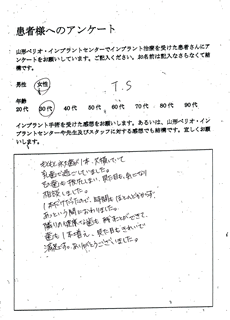 患者様へのアンケート
山形ペリオ・インプラントセンターでインプラント治療を受けた患者さんにア
ンケートをお願いしています。ご記入ください。お名前は記入なさらなくて結
構です。
男性 女性 T.S
年齢
20代 30代 40代 50代 60代 70代 80代 90代
インプラント手術を受けた感想をお願いします。あるいは、山形ペリオ・イン
プラントセンターや先生及びスタッフに対する感想でも結構です。宜しくお願
いします。
永久歯が1本、欠損していて
乳歯で過ごしていました。
相談しました。
1本だけだったので、時間も
あっという間におわりました。
隣りの健康な歯も残すことができて、
歯も1本増え、見た目もきれいで
満足です。ありがとうございました。